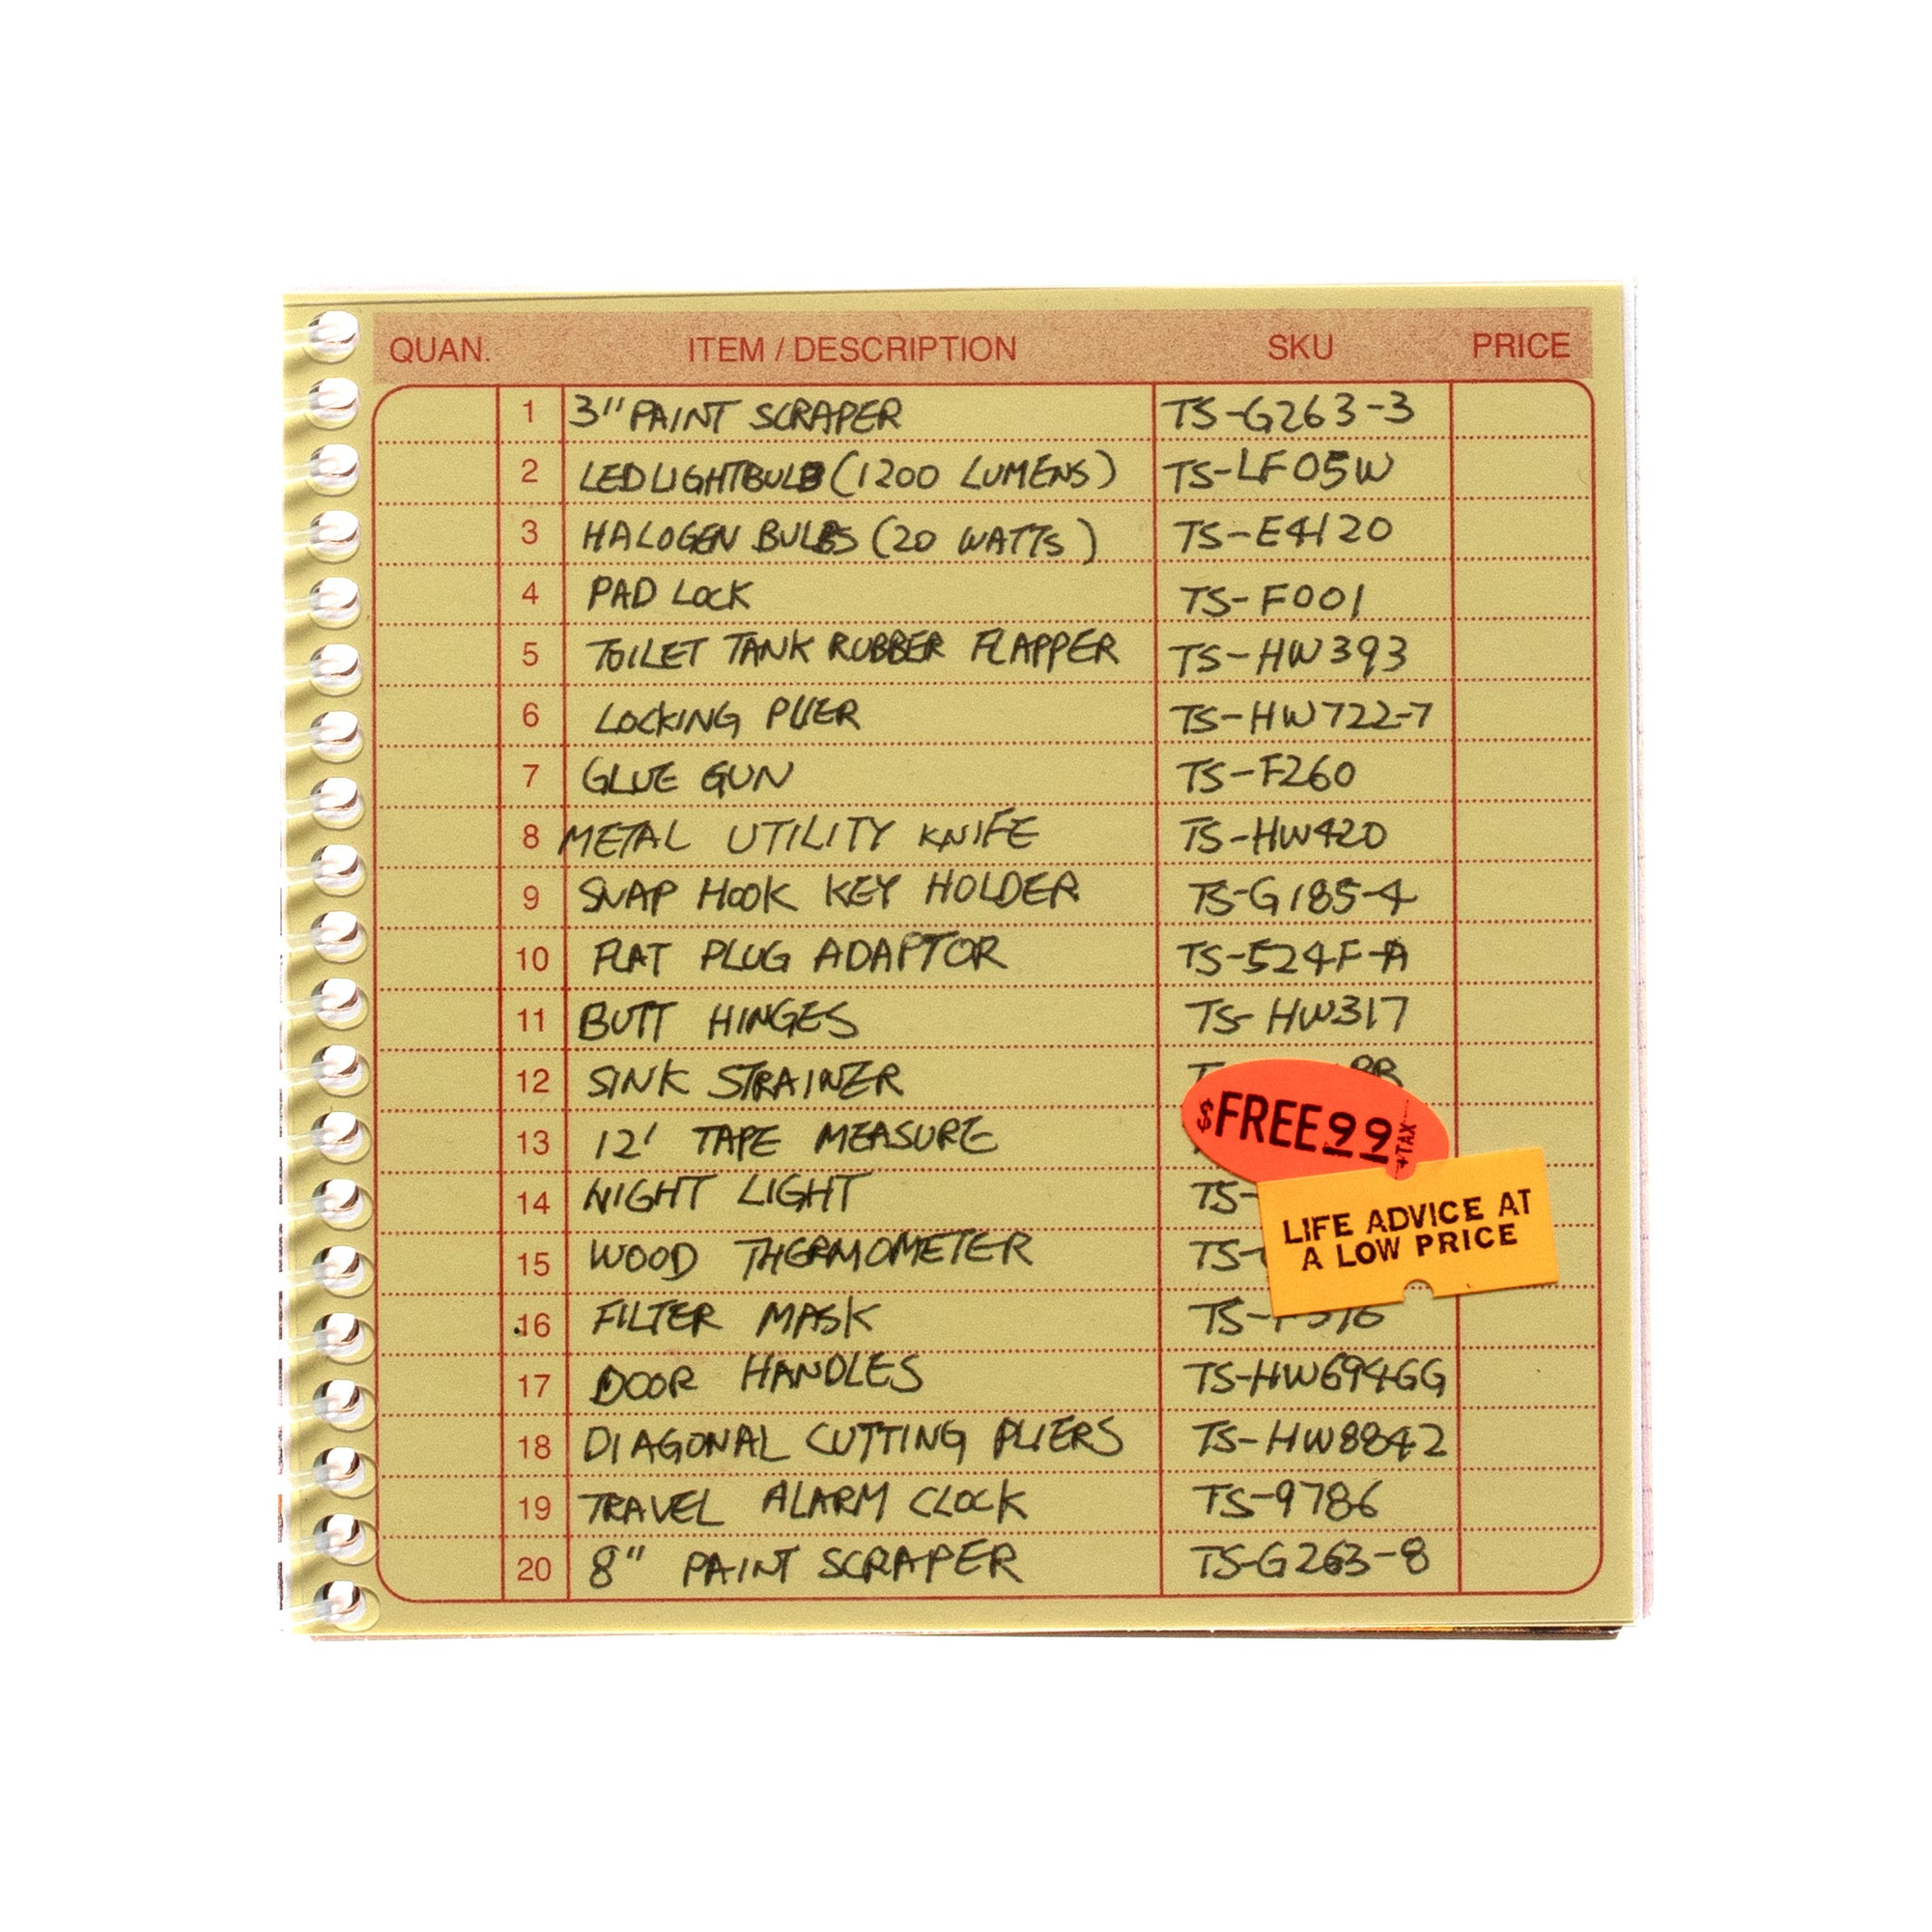 QUAN. ITEM / DESCRIPTION SKU PRICE
1 3" PAINT SCRAPER TS-G263-3
2 LED LIGHTBULB (1200 LUMENS) TS-LF05W
3 HALOGEN BULBS (20 WATTS) TS-E4120
4 PAD LOCK TS-F001
5 TOILET TANK RUBBER FLAPPER TS-HW393
6 LOCKING PLIER TS-HW722-7
7 GLUE GUN TS-F260
8 METAL UTILITY KNIFE TS-HW420
9 SNAP HOOK KEY HOLDER TS-G185-4
10 FLAT PLUG ADAPTOR TS-524F-A
11 BUTT HINGES TS-HW317
12 SINK STRAINER
13 12' TAPE MEASURE
14 NIGHT LIGHT TS-
15 WOOD THERMOMETER TS-
16 FILTER MASK
17 DOOR HANDLES TS-HW694GG
18 DIAGONAL CUTTING PLIERS TS-HW8842
19 TRAVEL ALARM CLOCK TS-9786
20 8" PAINT SCRAPER TS-G263-8
$FREE99 +TAX
LIFE ADVICE AT
A LOW PRICE